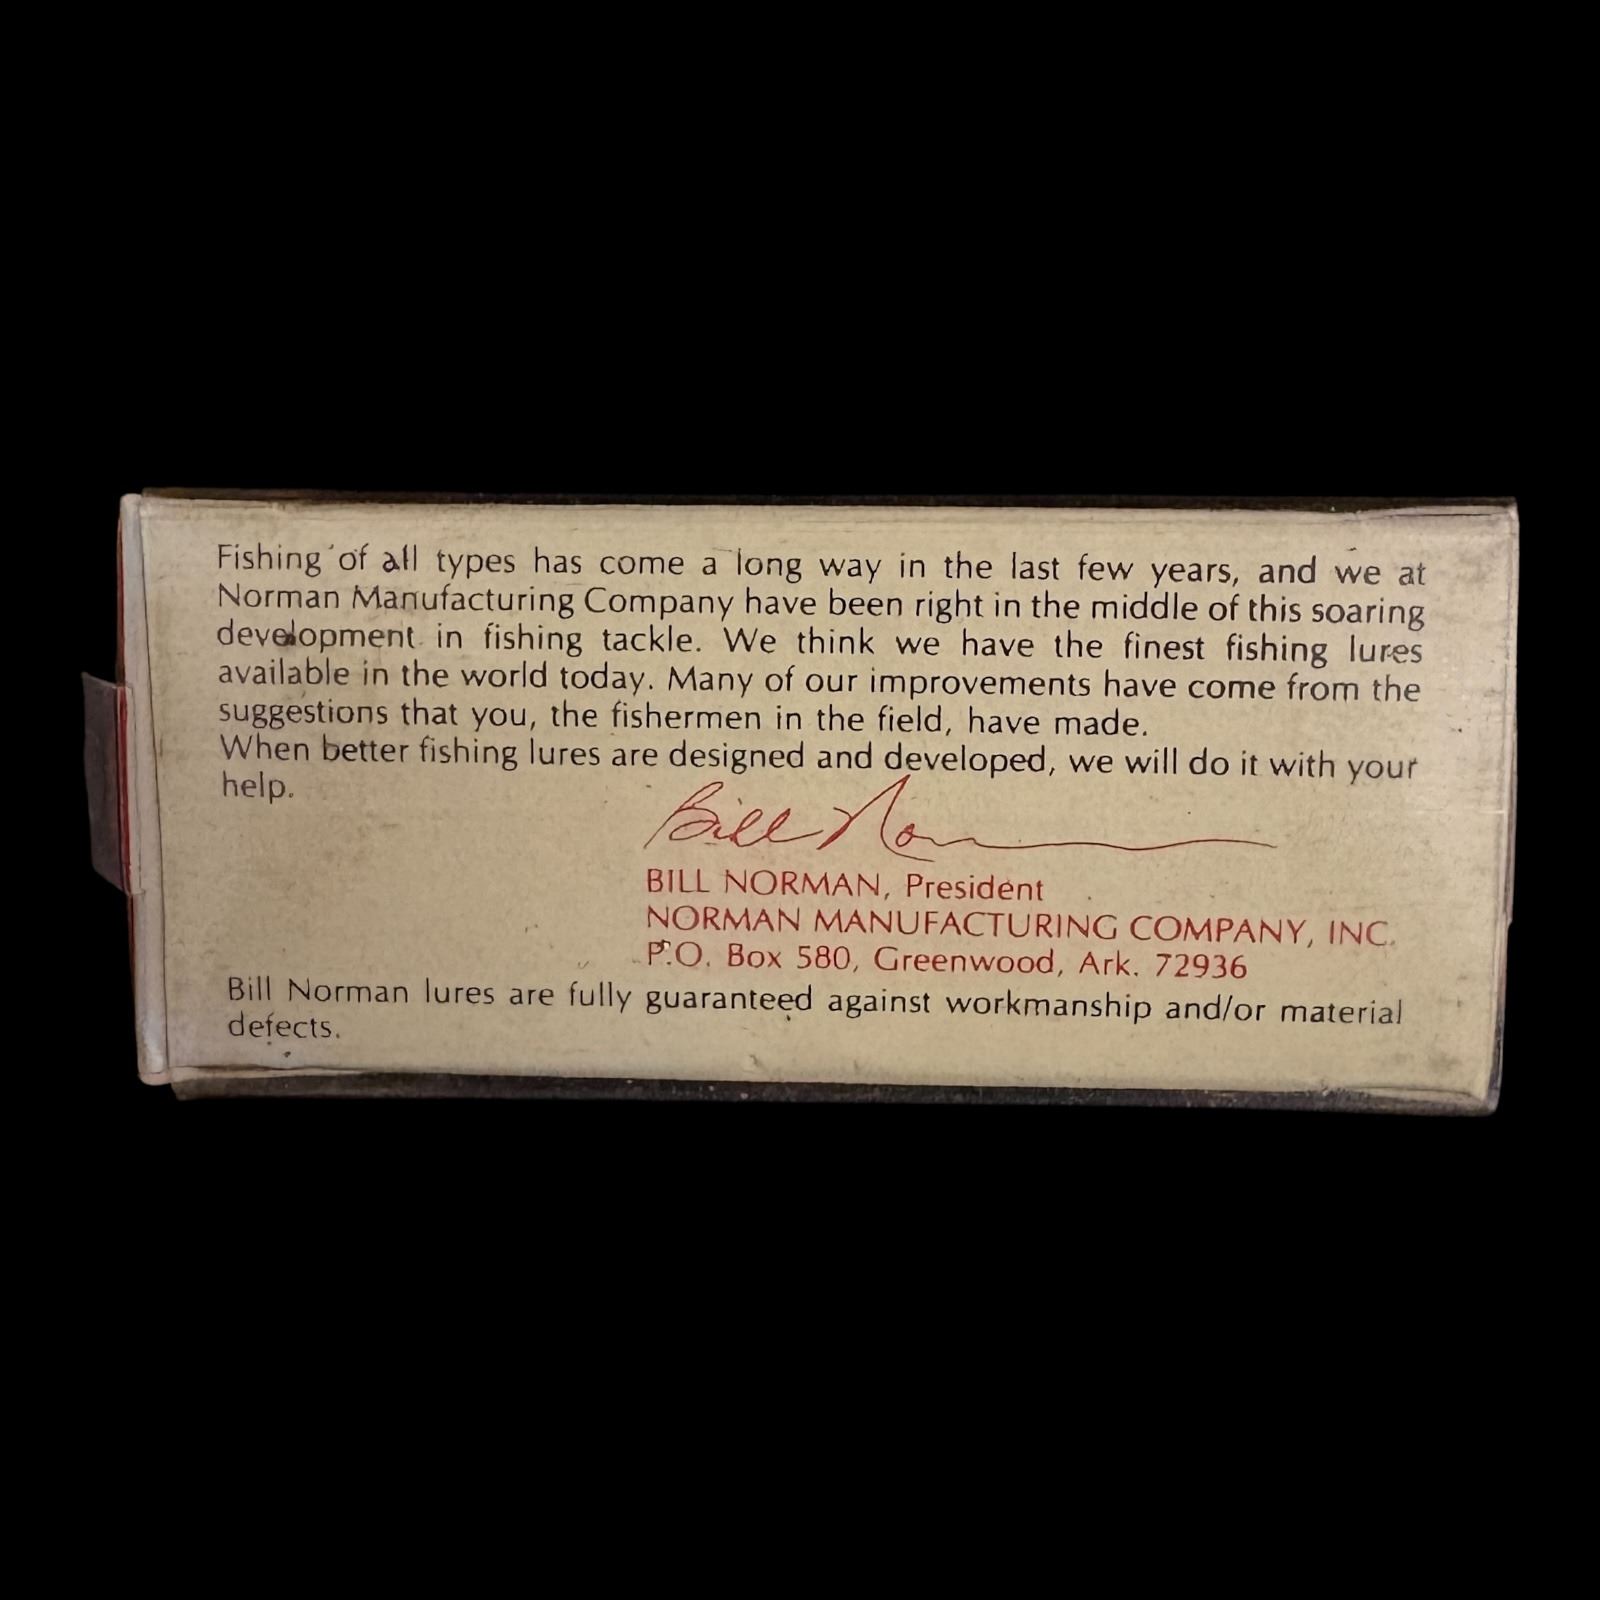 Fishing of all types has come a long way in the last few years, and we at
Norman Manufacturing Company have been right in the middle of this soaring
development in fishing tackle. We think we have the finest fishing lures
available in the world today. Many of our improvements have come from the
suggestions that you, the fishermen in the field, have made.
When better fishing lures are designed and developed, we will do it with your
help.
Bill Norman
BILL NORMAN, President
NORMAN MANUFACTURING COMPANY, INC.
P.O. Box 580, Greenwood, Ark. 72936
Bill Norman lures are fully guaranteed against workmanship and/or material
defects.